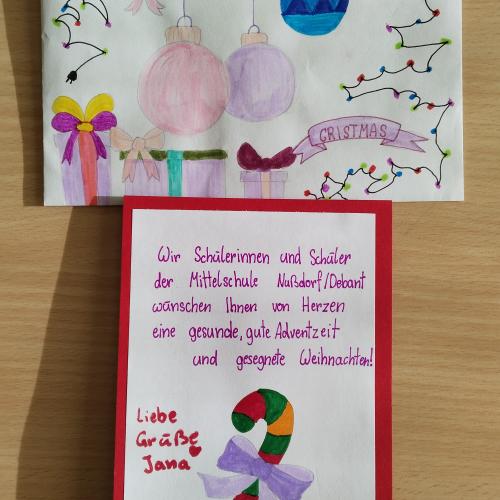 GRISTMAS
Wir Schülerinnen und Schüler
der Mittelschule Nußdorf/Debant
wünschen Ihnen von Herzen
eine gesunde, gute Adventzeit
und gesegnete Weihnachten!
Liebe
Grüße
Jana